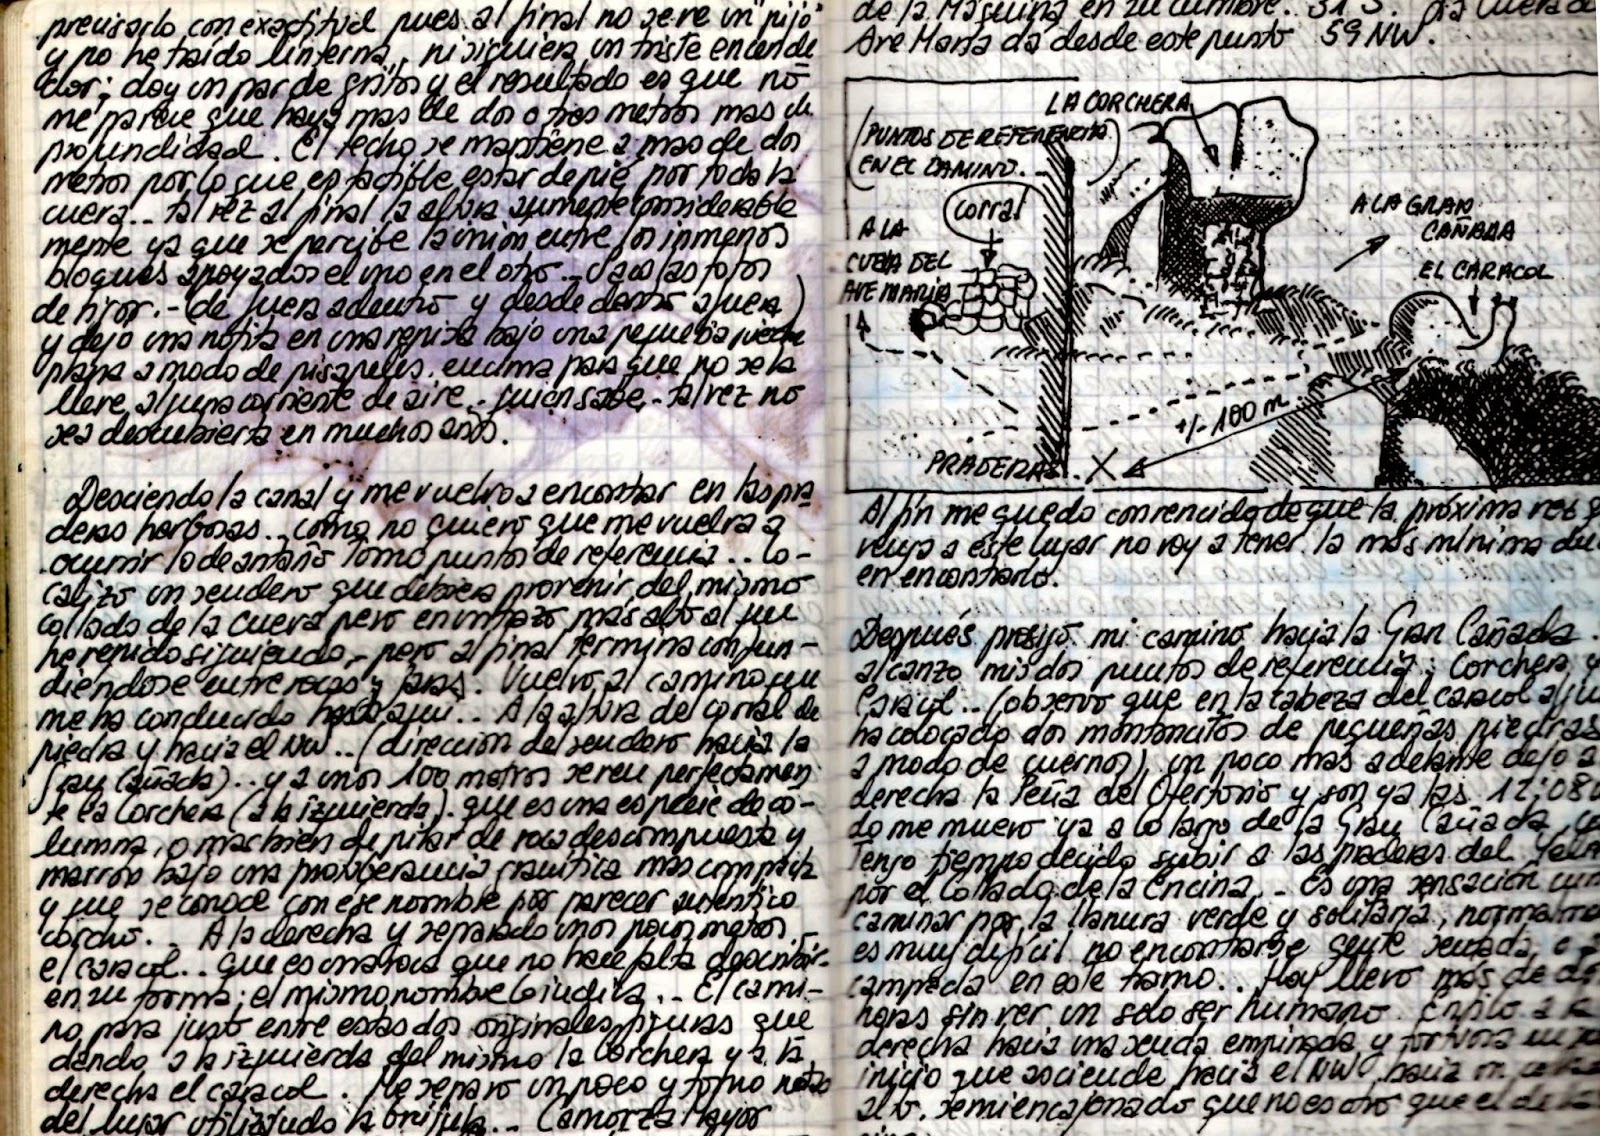 precisarlo con exactitud pues al final no se ve un "pijo"
y no he traído linterna, ni siquiera un triste encende-
dor; doy un par de gritos y el resultado es que no
me parece que haya mas de dos o tres metros mas de
profundidad. El techo se mantiene a mas de dos
metros por lo que es factible estar de pié por toda la
cueva.. tal vez al final la altura aumente considerable
mente ya que se percibe la unión entre los inmensos
bloques apoyados el uno en el otro.. Saco las fotos
de rigor.- de fuera adentro y desde dentro afuera)
y dejo una notita en una repisa bajo una pequeña piedra
plana a modo de pisapapeles encima para que no se la
lleve alguna corriente de aire.. quien sabe.. tal vez no
sea descubierta en muchos años.
Desciendo la canal y me vuelvo a encontrar en las pra-
deras herbosas.. como no quiero que me vuelva a
ocurrir lo de antaño tomo puntos de referencia.. lo-
calizo un sendero que debiera provenir del mismo
collado de la cueva pero en un trazo más alto al que
he venido siguiendo, pero al final termina confun-
diéndose entre rocas y jaras. Vuelvo al camino que
me ha conducido hasta aquí.. A la altura del corral de
piedra y hacia el NW.. (dirección del sendero hacia la
Gran Cañada).. y a unos 100 metros se ven perfectamen
te la Corchera (a la izquierda). que es una especie de co-
lumna, o mas bien de pilar de roca descompuesta y
marrón bajo una protuberancia granítica mas compacta
y que se conoce con ese nombre por parecer autentico
corcho.. A la derecha y separado unos pocos metros..
el caracol.. que es una roca que no hace falta describir
en su forma; el mismo nombre lo indica.. El cami-
no pasa justo entre estas dos originales figuras que
dando a la izquierda del mismo la Corchera y a la
derecha el caracol. Me separo un poco y tomo notas
del lugar utilizando la brújula.. Camorza Mayor
de la Maquina en su cumbre. 31 S. La Cueva del
Ave María da desde este punto 59 NW.
LA CORCHERA
(PUNTOS DE REFERENCIA
EN EL CAMINO..)
corral
A LA
CUEVA DEL
AVE MARIA
A LA GRAN
CAÑADA
EL CARACOL
+/- 100 m.
PRADERAS.. X
Al fin me quedo convencido de que la próxima vez q
venga a este lugar no voy a tener la mas mínima du
en encontrarlo.
Después prosigo mi camino hacia la Gran Cañada.
alcanzo mis dos puntos de referencia; Corchera y
Caracol.. (observo que en la cabeza del caracol algu
ha colocado dos montoncitos de pequeñas piedras
a modo de cuernos) un poco mas adelante dejo a
derecha la Peña del Ofertorio y son ya las 12:08
do me muevo ya a lo largo de la Gran Cañada, co
tengo tiempo decido subir a las praderas del
por el Collado de la Encina.. Es una sensación
caminar por la llanura verde y solitaria, normalme
es muy difícil no encontrarse gente sentada o
campeda en este tramo.. Hoy llevo más de do
horas sin ver un solo ser humano. Enfilo a la
derecha hacia una senda empinada y tortuosa en
inicio que asciende hacia el NW hacia un
alto. semiencajonado que no es otro que el de la